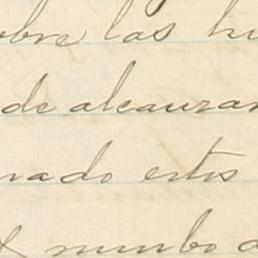 obre las hi
de alcanzar
nado estos
& numbo a